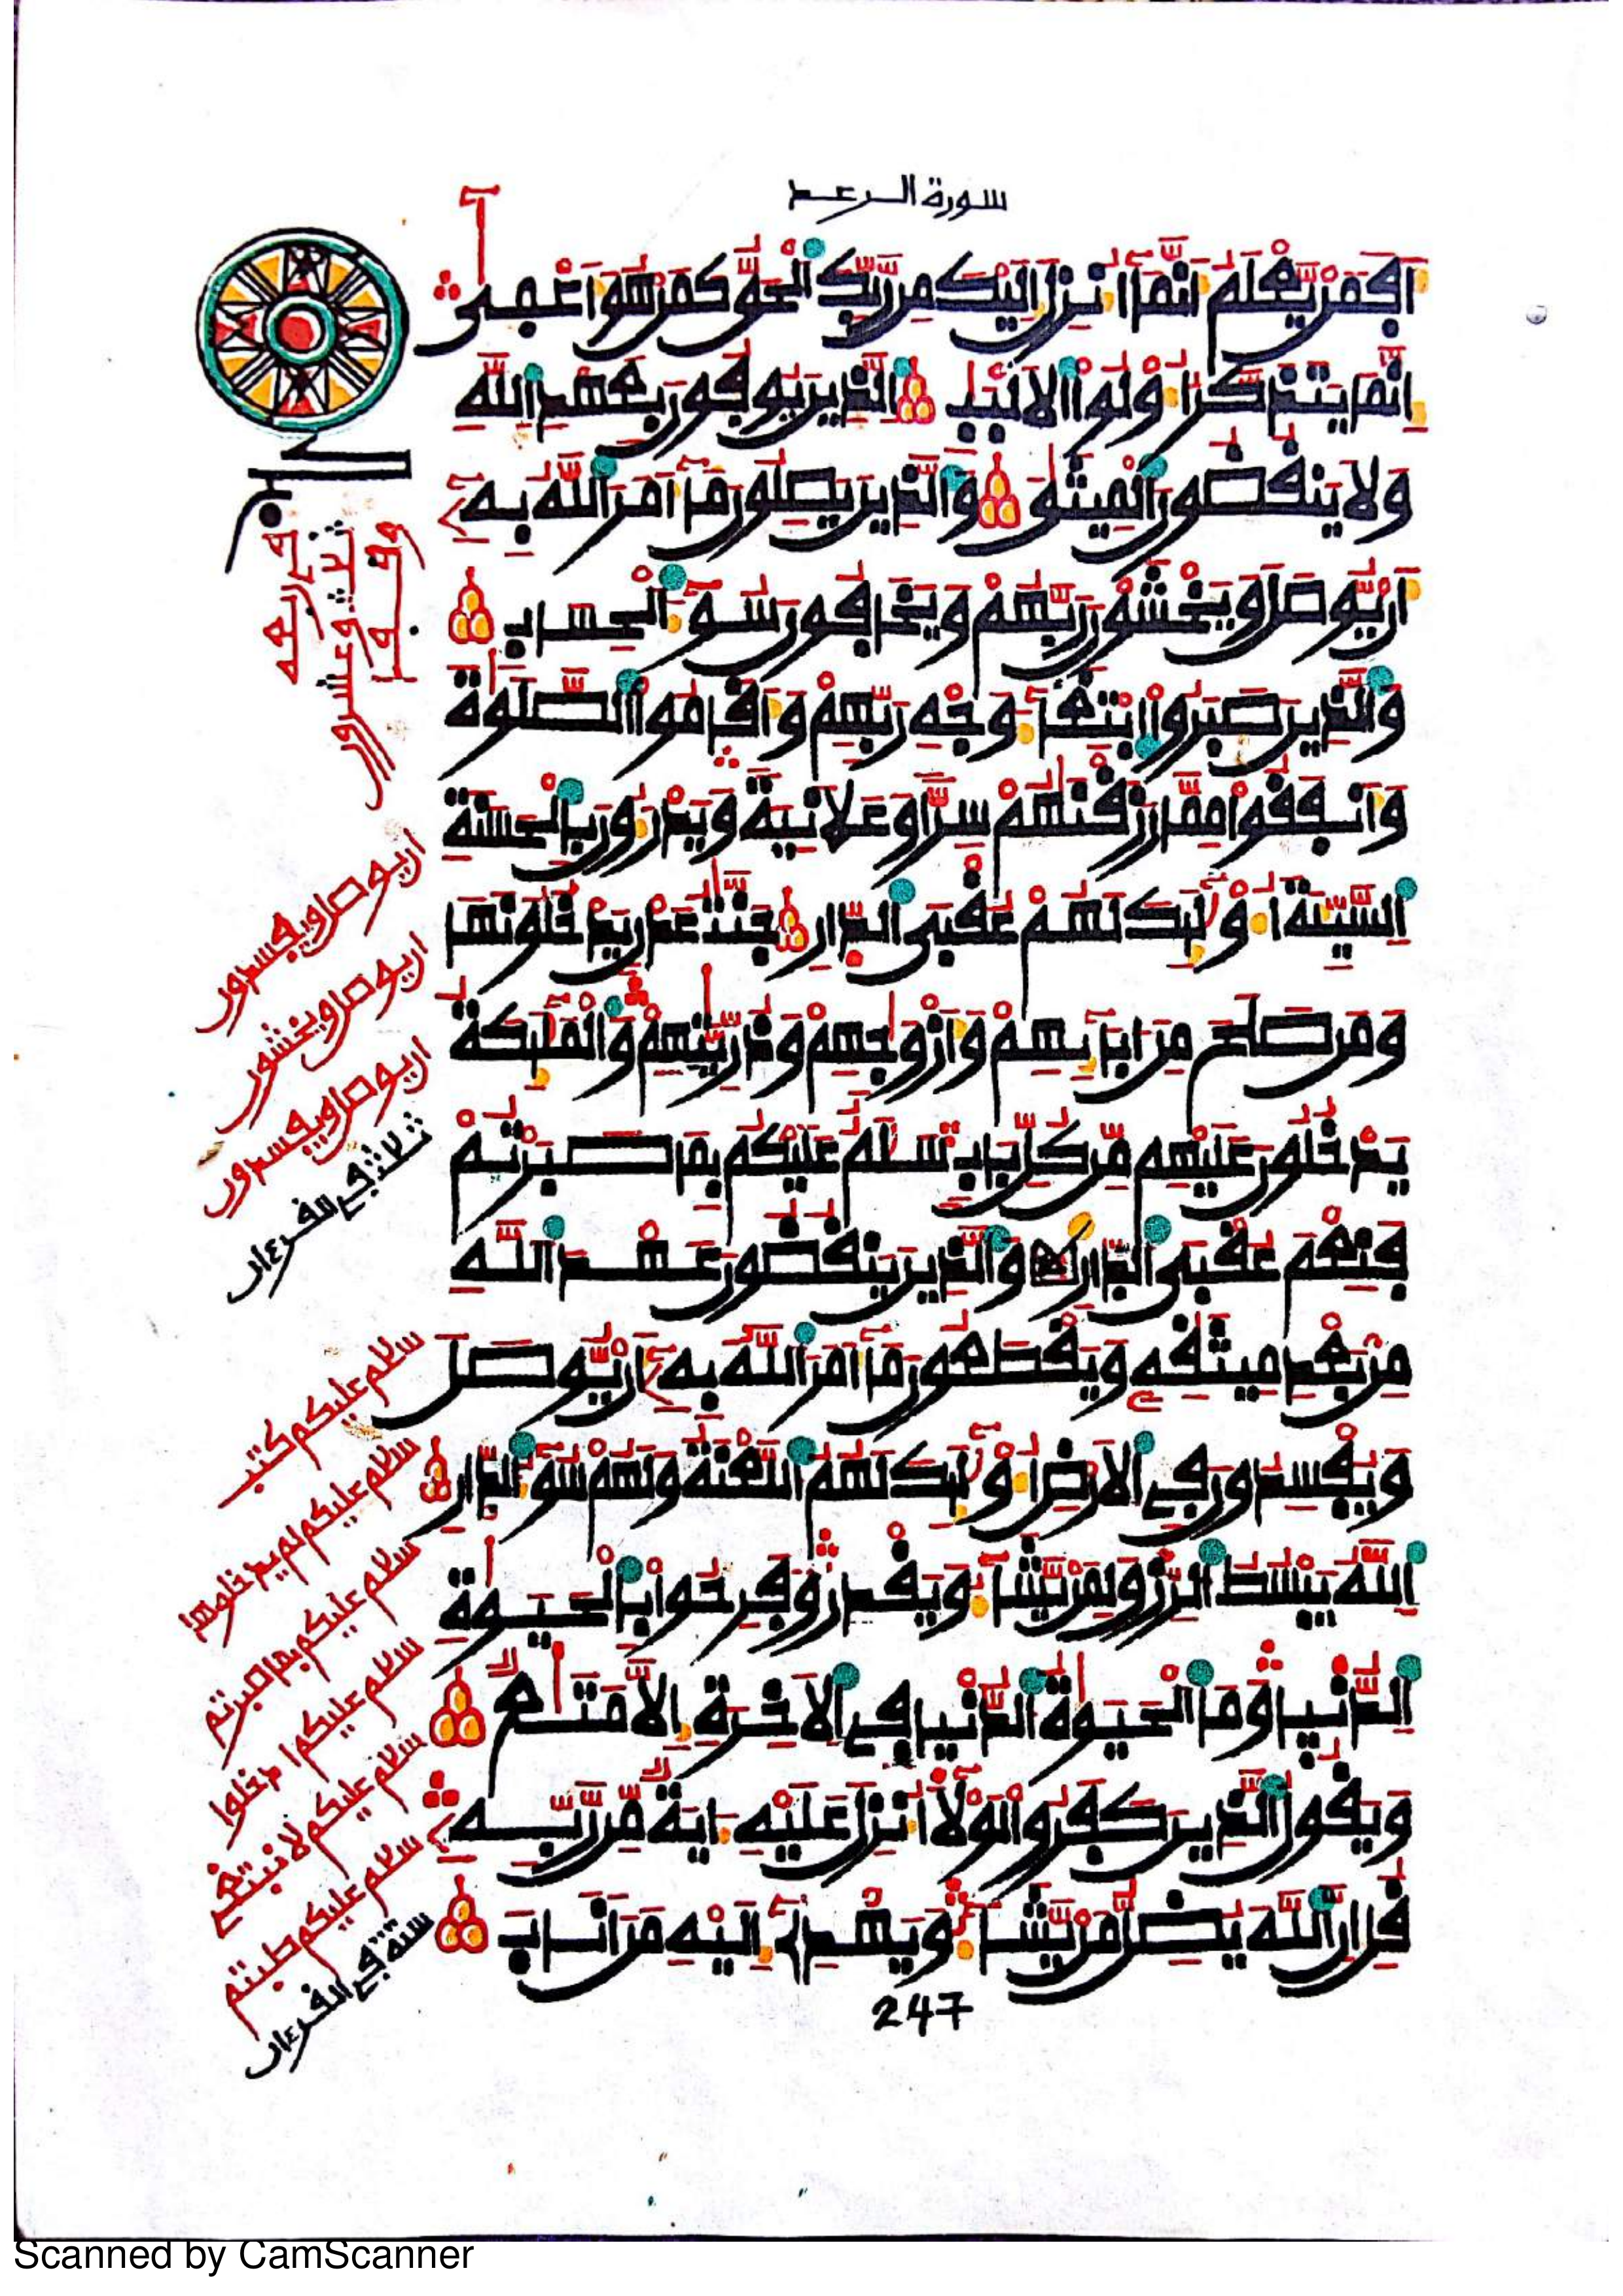 سورة الرعد
اَفَمَنْ يَّعْلَمُ اَنَّمَا اُنزِلَ اِلَيْكَ مِن رَّبِّكَ اَلْحَقُّ كَمَنْ هُوَ اَعْمٰى
اِنَّمَا يَتَذَكَّرُ اُوْلُوا اَلَالْبٰبِ اَلذِينَ يُوفُونَ بِعَهْدِ اِللَّهِ
وَلَا يَنقُضُونَ اَلْمِيثٰقَ وَالذِينَ يَصِلُونَ مَا أَمَرَ اَللَّهُ بِهِ
أَنْ يُّوصَلَ وَيَخْشَوْنَ رَبَّهُمْ وَيَخَافُونَ سُوءَ اَلْحِسَابِ
وَالذِينَ صَبَرُوا اُبْتِغَاءَ وَجْهِ رَبِّهِمْ وَأَقَامُوا اَلصَّلَوٰةَ
وَأَنفَقُوا مِمَّا رَزَقْنَٰهُمْ سِرّاً وَعَلَانِيَةً وَيَدْرَءُونَ بِالْحَسَنَةِ
اِلسَّيِّئَةَ أُوْلَٰئِكَ لَهُمْ عُقْبَى اَلدّارِ جَنَّٰتُ عَدْنٍ يَدْخُلُونَهَا
وَمَن صَلَحَ مِنَ ابَائِهِمْ وَأَزْوَٰجِهِمْ وَذُرِّيَّٰتِهِمْ وَالْمَلَٰئِكَةُ
يَدْخُلُونَ عَلَيْهِم مِّن كُلِّ بَابٍ سَلَٰمٌ عَلَيْكُم بِمَا صَبَرْتُمْ
فَنِعْمَ عُقْبَى اَلدّارِ وَالذِينَ يَنقُضُونَ عَهْدَ اَللَّهِ
مِنۢ بَعْدِ مِيثَٰقِهِ وَيَقْطَعُونَ مَا أَمَرَ اَللَّهُ بِهِ أَنْ يُّوصَلَ
وَيُفْسِدُونَ فِي اِلَارْضِ أُوْلَٰئِكَ لَهُمُ اُللَّعْنَةُ وَلَهُمْ سُوءُ اُلدّارِ
اِللَّهُ يَبْسُطُ اُلرِّزْقَ لِمَنْ يَّشَاءُ وَيَقْدِرُ وَفَرِحُوا بِالْحَيَوٰةِ
اِلدُّنْيَا وَمَا اَلْحَيَوٰةُ اُلدُّنْيَا فِي اِلَاخِرَةِ إِلَّا مَتَٰعٌ
وَيَقُولُ اُلذِينَ كَفَرُوا لَوْلَا أُنزِلَ عَلَيْهِ ءَايَةٌ مِّن رَّبِّهِ
قُلِ اِنَّ اَللَّهَ يُضِلُّ مَنْ يَّشَاءُ وَيَهْدِي إِلَيْهِ مَنَ اَنَابَ
247
وقفوا
ثلاث وعشرون
في الرعد
ان يوصل ويفسدون
ان يوصل ويخشون
ان يوصل ويفسدون
ثلاث في القرءان
سلام عليكم كتب
سلام عليكم لم يدخلوها
سلام عليكم بما صبرتم
سلام عليكم ادخلوا
سلام عليكم لا نبتغي
سلام عليكم طبتم
ستة في القرءان
Scanned by CamScanner